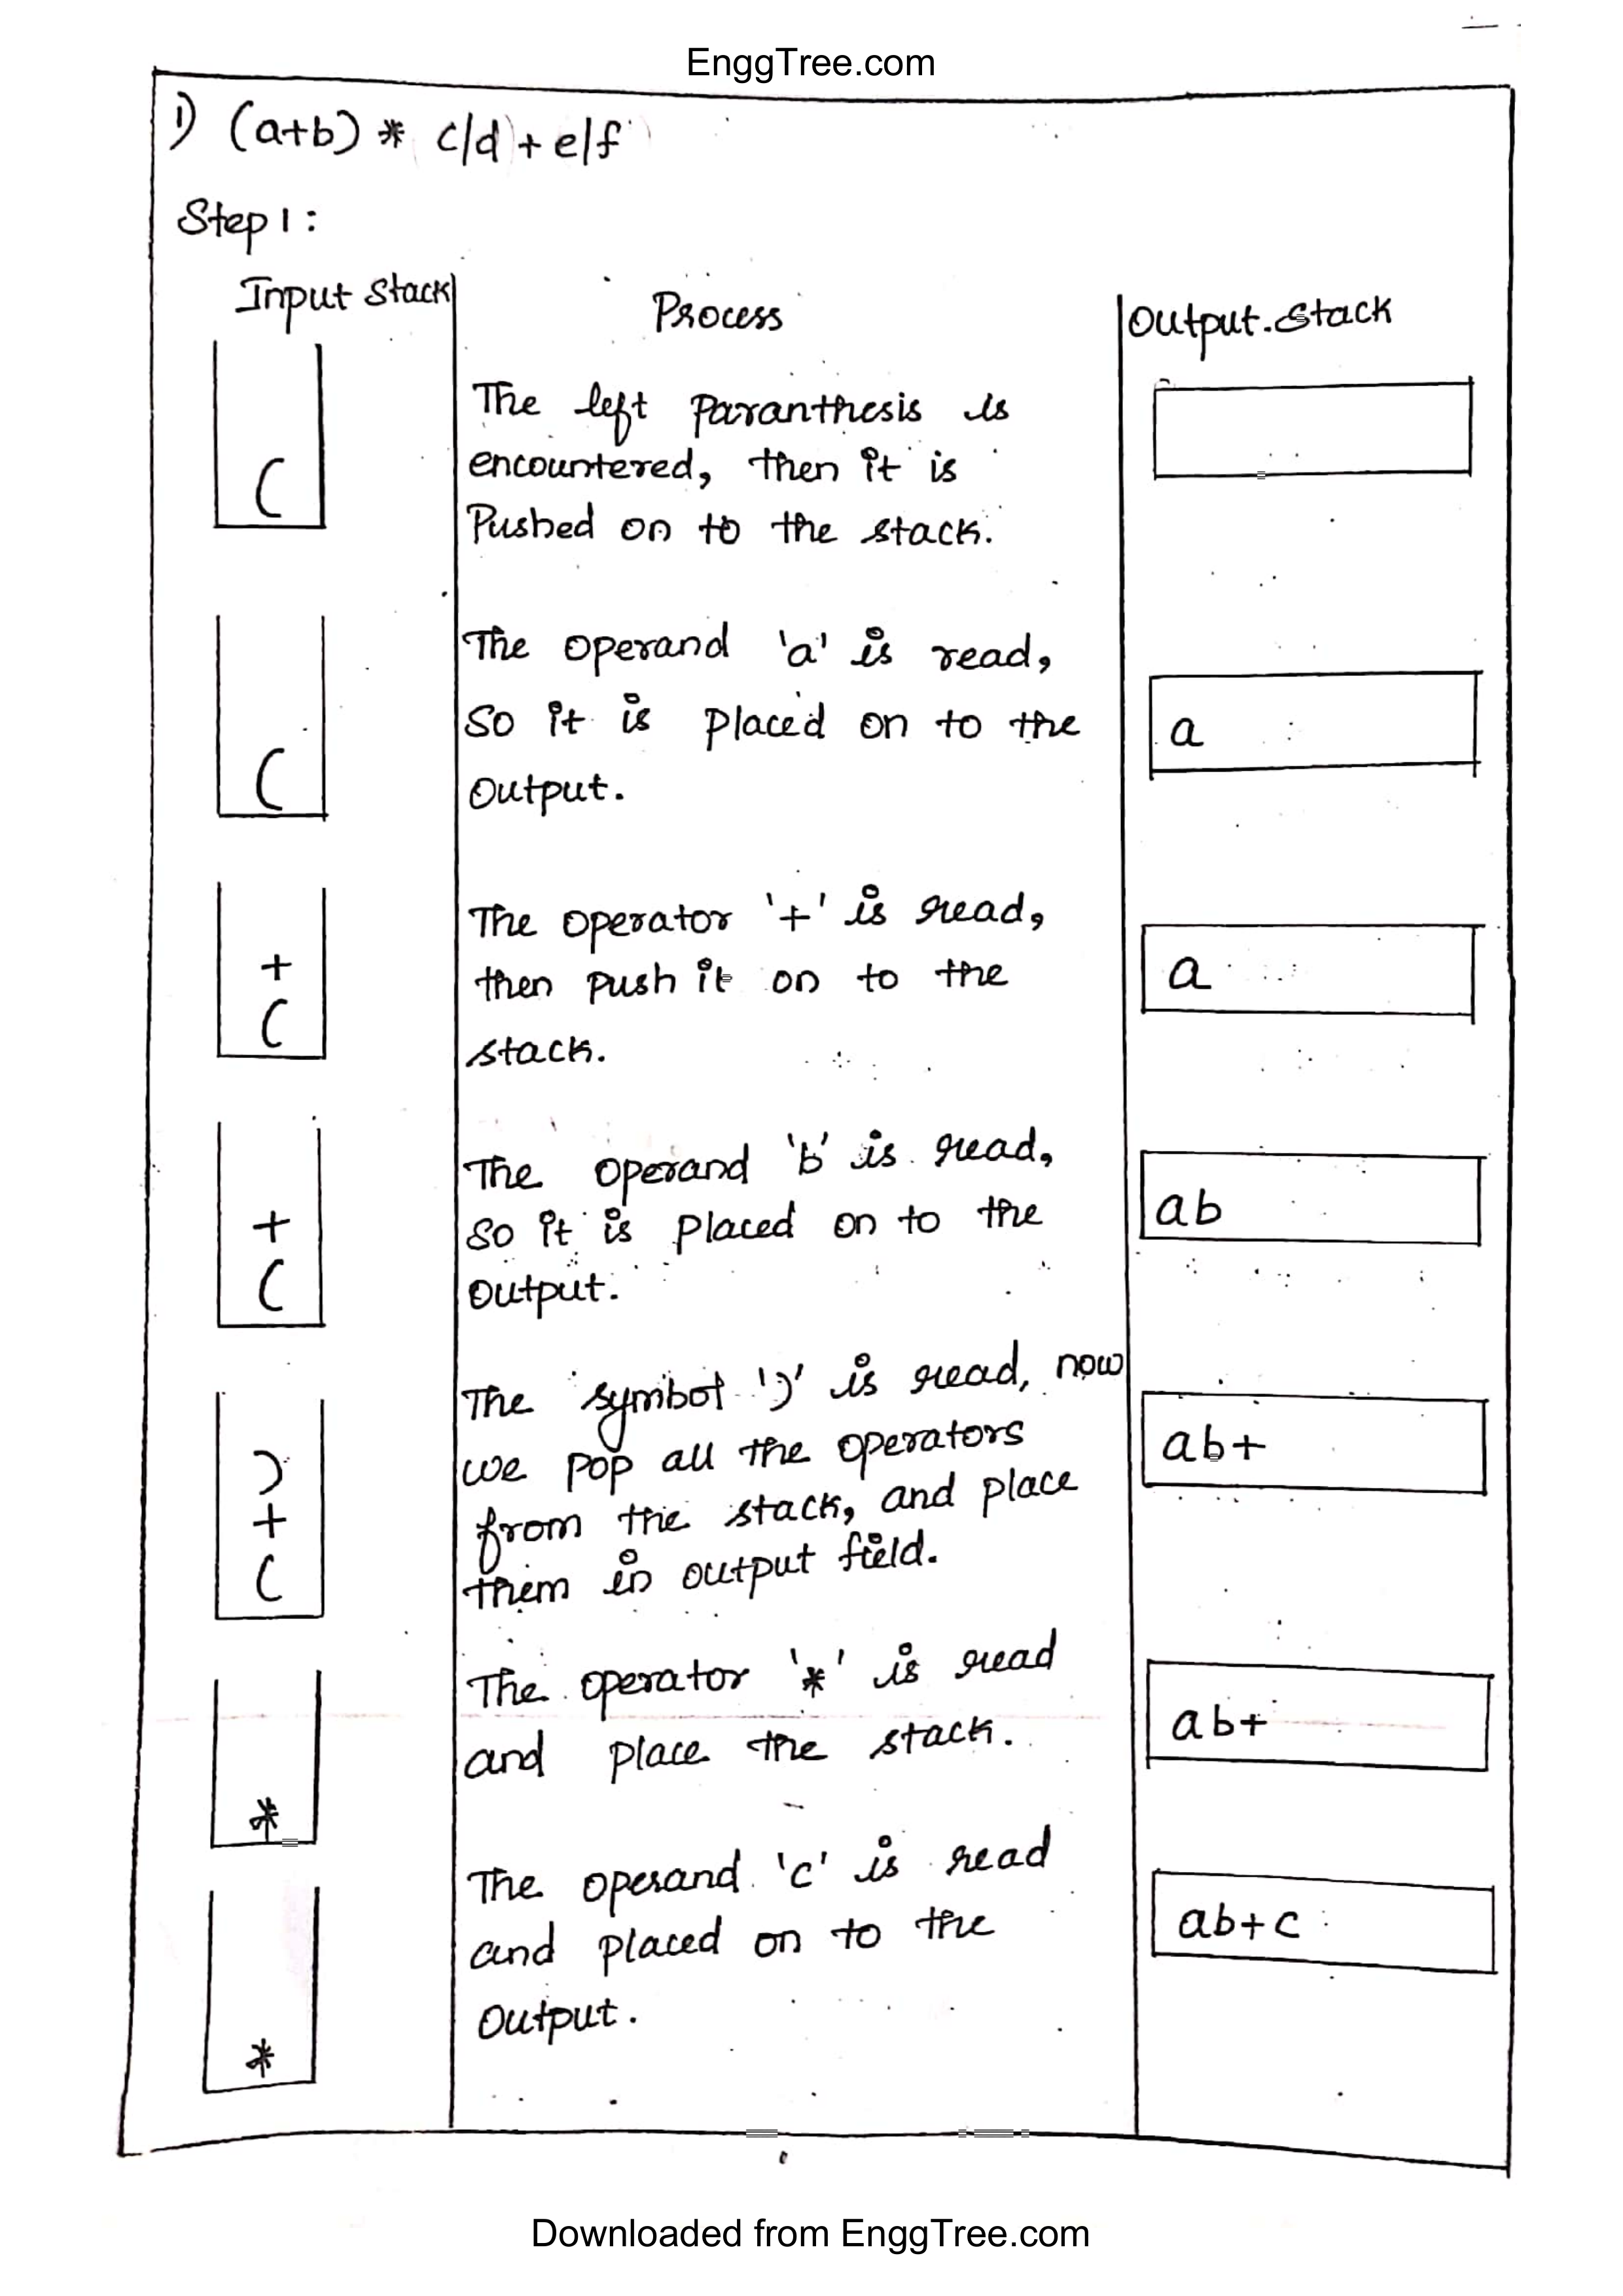 EnggTree.com
1) (a+b) * c/d + e/f
Step 1:
Input Stack
Process
Output Stack
(
The left Paranthesis is
encountered, then it is
Pushed on to the stack.
(
The operand 'a' is read,
So it is placed on to the
Output.
a
+
(
The operator '+' is read,
then push it on to the
stack.
a
+
(
The operand 'b' is read,
so it is placed on to the
Output.
ab
)
+
(
The symbol ')' is read, now
we pop all the operators
from the stack, and place
them in output field.
ab+
*
The operator '*' is read
and place the stack.
ab+
*
The operand 'c' is read
and placed on to the
Output.
ab+c
Downloaded from EnggTree.com